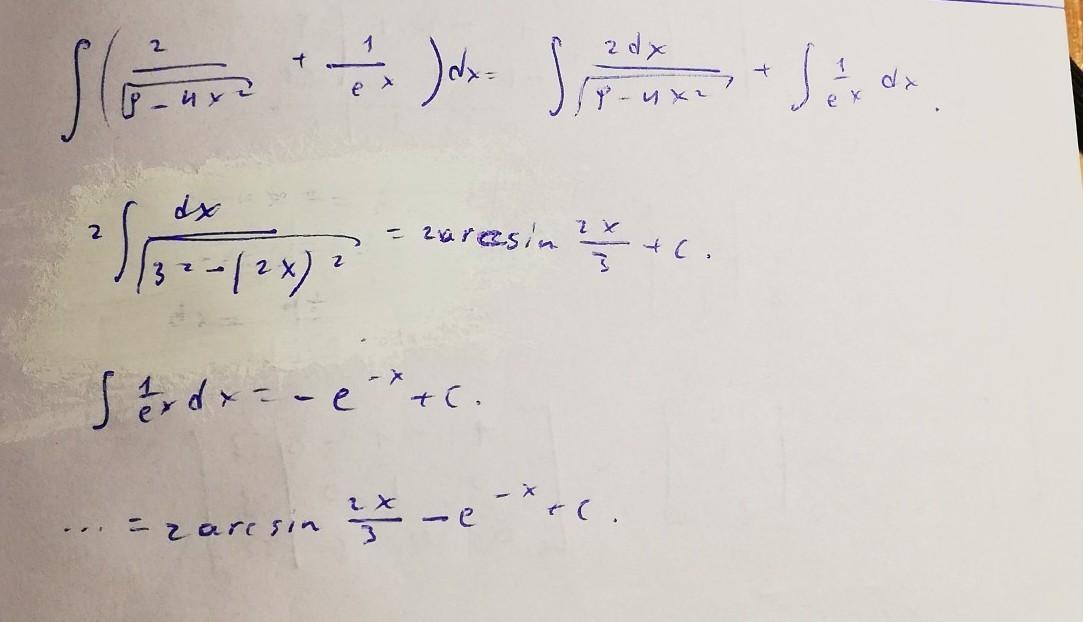 ∫(2/√(9-4x²) + 1/eˣ)dx = ∫2dx/√(9-4x²) + ∫1/eˣ dx.
2∫dx/√(3²-(2x)²) = 2arcsin 2x/3 + C.
∫1/eˣ dx = -e⁻ˣ + C.
... = 2arcsin 2x/3 - e⁻ˣ + C.